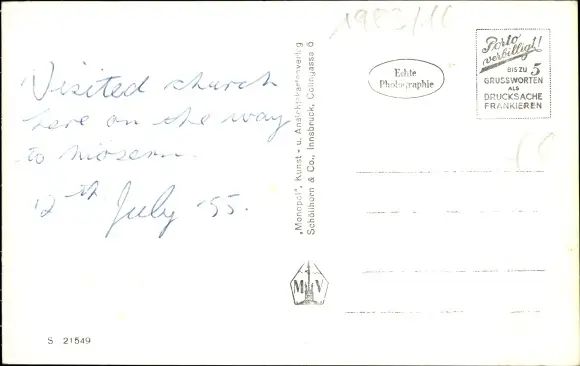 Visited church
here on the way
to Mösern.
12th July '55.
S 21549
„Monopol", Kunst- u. Ansichtskartenverlag
Schöllhorn & Co., Innsbruck, Collingasse 6
M V
Echte
Photographie
Porto
verbilligt!
BIS ZU 5
GRUSSWORTEN
ALS
DRUCKSACHE
FRANKIEREN